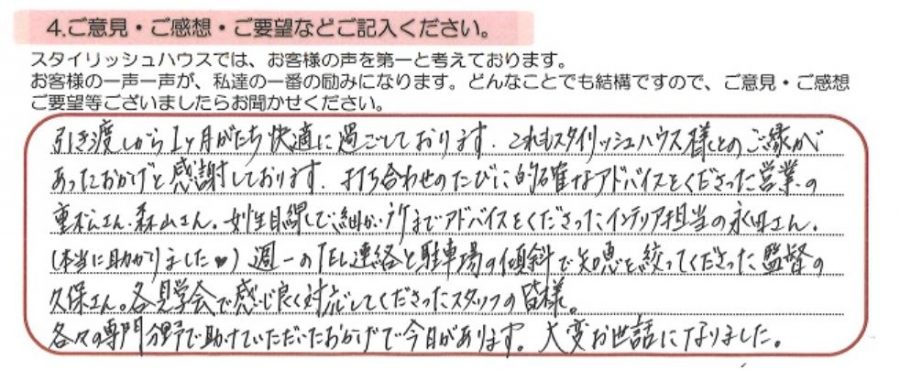 4.ご意見・ご感想・ご要望などご記入ください。
スタイリッシュハウスでは、お客様の声を第一と考えております。
お客様の一声一声が、私達の一番の励みになります。どんなことでも結構ですので、ご意見・ご感想
ご要望等ございましたらお聞かせください。
引き渡しから1ヶ月がたち快適に過ごしております。これもスタイリッシュハウス様とのご縁が
あったおかげと感謝しております。打ち合わせのたびに的確なアドバイスをくださった営業の
重松さん、森山さん。女性目線で細かい所までアドバイスをくださったインテリア担当の永田さん。
(本当に助かりました♥)週一のTEL連絡と駐車場の傾斜で知恵を絞ってくださった監督の
久保さん。各見学会で感じ良く対応してくださったスタッフの皆様。
各々の専門分野で助けていただいたおかげで今日があります。大変お世話になりました。